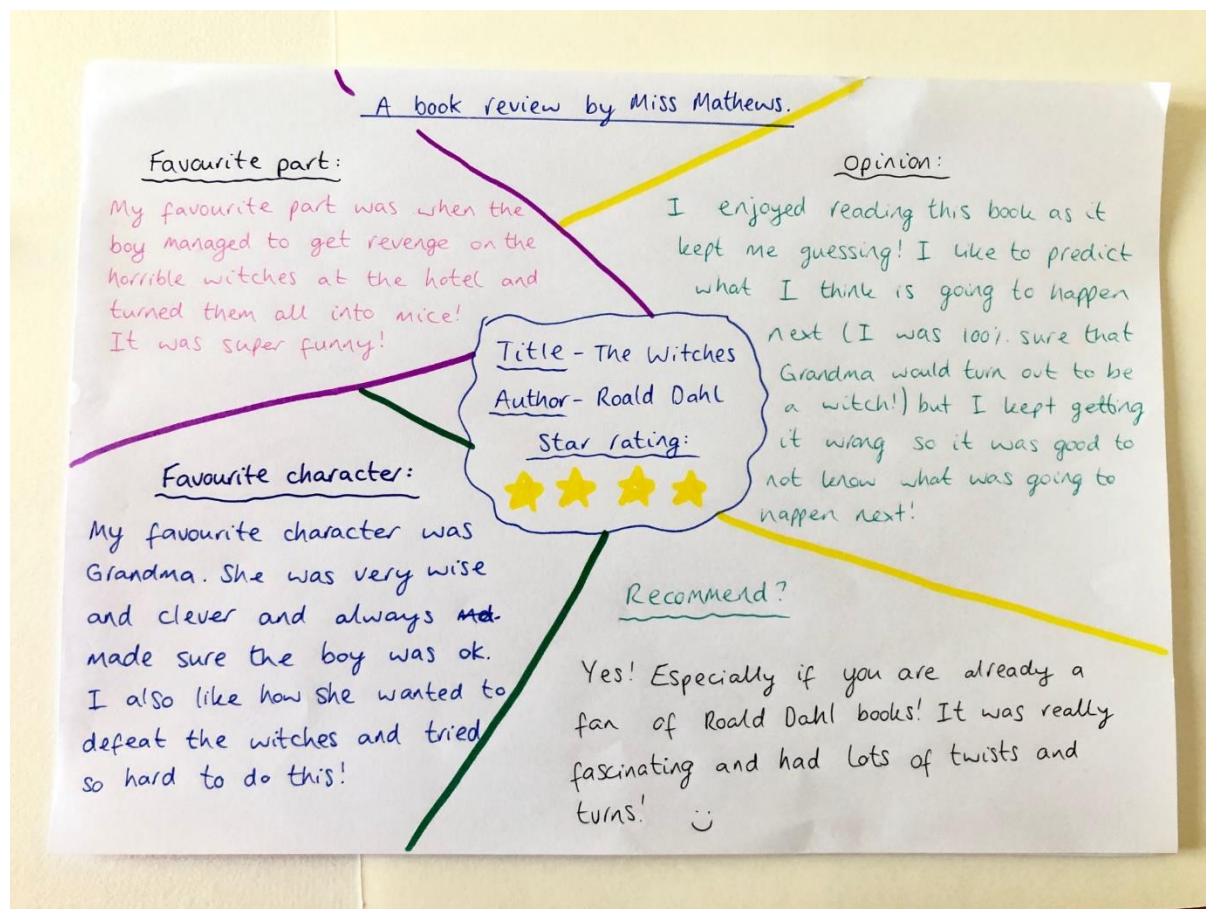 A book review by Miss Mathews.
Favourite part:
My favourite part was when the
boy managed to get revenge on the
horrible witches at the hotel and
turned them all into mice!
It was super funny!
Opinion:
I enjoyed reading this book as it
kept me guessing! I like to predict
what I think is going to happen
next (I was 100% sure that
Grandma would turn out to be
a witch!) but I kept getting
it wrong so it was good to
not know what was going to
happen next!
Title - The Witches
Author - Roald Dahl
Star rating:
Favourite character:
My favourite character was
Grandma. She was very wise
and clever and always
made sure the boy was ok.
I also like how she wanted to
defeat the witches and tried
so hard to do this!
Recommend?
Yes! Especially if you are already a
fan of Roald Dahl books! It was really
fascinating and had lots of twists and
turns!